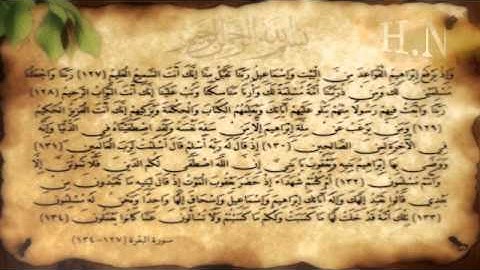 بسم الله الرحمن الرحيم
H.N
وإذ يرفع إبراهيم القواعد من البيت وإسماعيل ربنا تقبل منا إنك أنت السميع العليم (١٢٧) ربنا واجعلنا
مسلمين لك ومن ذريتنا أمة مسلمة لك وأرنا مناسكنا وتب علينا إنك أنت التواب الرحيم (١٢٨)
ربنا وابعث فيهم رسولا منهم يتلو عليهم آياتك ويعلمهم الكتاب والحكمة ويزكيهم إنك أنت العزيز الحكيم
(١٢٩) ومن يرغب عن ملة إبراهيم إلا من سفه نفسه ولقد اصطفيناه في الدنيا وإنه
في الآخرة لمن الصالحين (١٣٠) إذ قال له ربه أسلم قال أسلمت لرب العالمين (١٣١)
ووصى بها إبراهيم بنيه ويعقوب يا بني إن الله اصطفى لكم الدين فلا تموتن إلا
وأنتم مسلمون (١٣٢) أم كنتم شهداء إذ حضر يعقوب الموت إذ قال لبنيه ما تعبدون من
بعدي قالوا نعبد إلهك وإله آبائك إبراهيم وإسماعيل وإسحاق إلها واحدا ونحن له مسلمون
(١٣٣) تلك أمة قد خلت لها ما كسبت ولكم ما كسبتم ولا تسألون عما كانوا يعملون (١٣٤)
سورة البقرة (١٢٧-١٣٤)